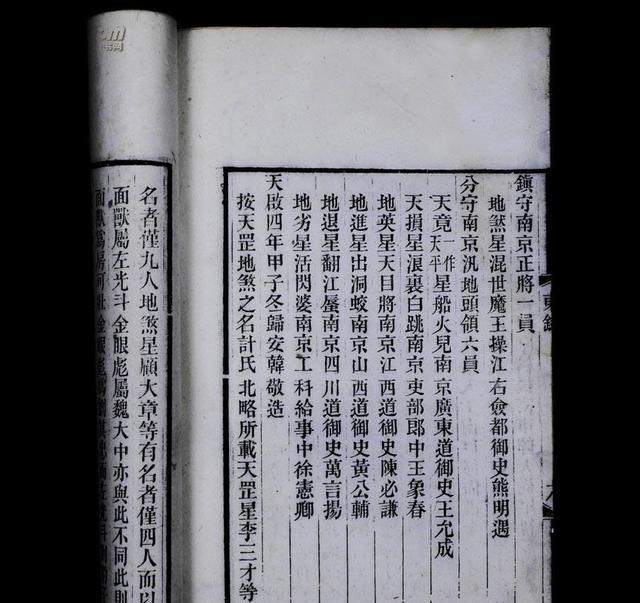 鎮守南京正將一員
地煞星混世魔王操江右僉都御史熊明遇
分守南京汛地頭領六員
天竟一作天平星船火兒南京廣東道御史王允成
天損星浪裏白跳南京吏部郎中王象春
地英星天目將南京江西道御史陳必謙
地進星出洞蛟南京山西道御史黃公輔
地退星翻江蜃南京四川道御史萬言揚
地劣星活閃婆南京工科給事中徐憲卿
天啟四年甲子冬歸安韓敬造
按天罡地煞之名計氏北略所載天罡星李三才等
名者僅九人地煞星顧大章等有名者僅四人而以
面獸屬左光斗金眼彪屬魏大中亦與此不同此則